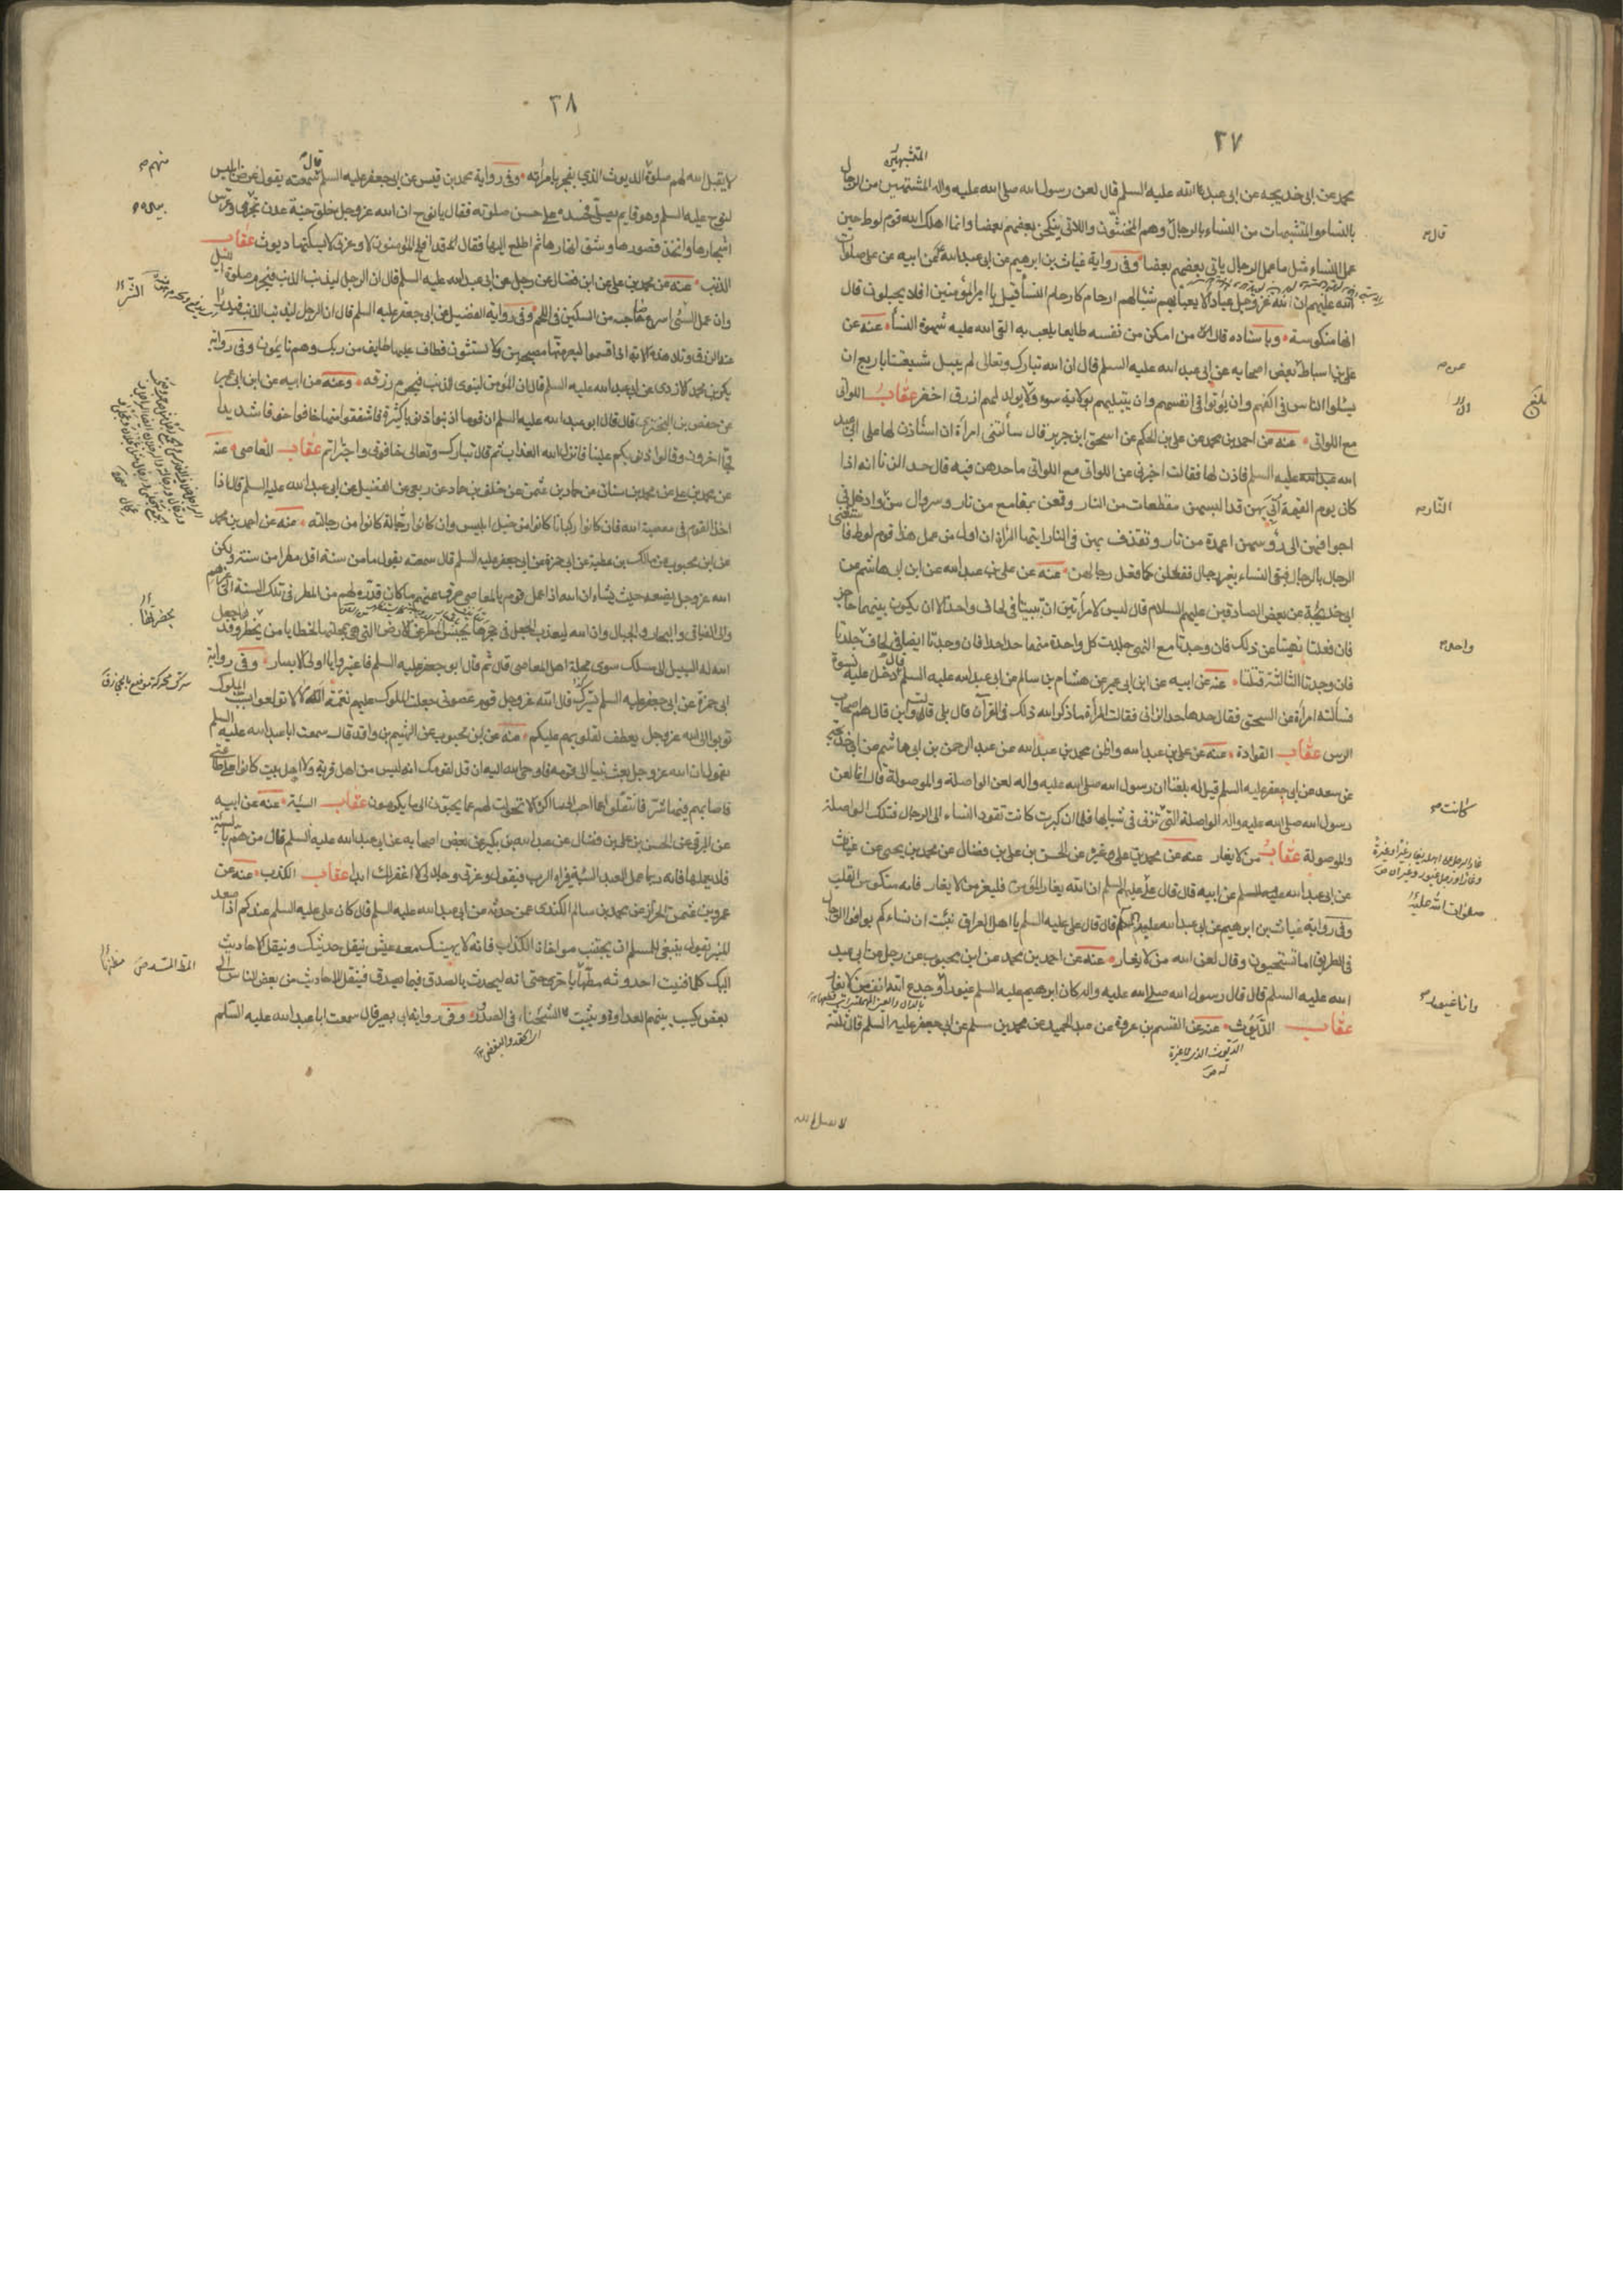 ٢٧
المتشبهين
محمد عن ابي خديجه عن ابي عبد الله عليه السلم قال لعن رسول الله صلى الله عليه واله المشتبهين من الرجال
بالنساء والمتشبهات من النساء بالرجال وهم المخنثون واللاتي ينكحن بعضهم بعضا وانما اهلك الله قوم لوط حين
عمل النساء مثل ما عمل الرجال ياتي بعضهم بعضا وفي رواية غياث بن ابرهيم عن ابي عبد الله عن ابيه عن علي صلوات
الله عليهم ان لله عز وجل عبادا لا يعبأ بهم شيئا لهم ارحام كارحام النساء قيل يا امير المؤمنين افلا يحبلون قال
انها منكوسة وباسناده قال من امكن من نفسه طايعا يلعب به القى الله عليه شهوة النساء عنه عن
علي بن اسباط عن بعض اصحابه عن ابي عبد الله عليه السلم قال ان الله تبارك وتعالى لم يبتل شيعتنا باربع ان
يسئلوا الناس في اكفهم وان يؤتوا في انفسهم وان يبتليهم بولاية سوء ولا يولد لهم ازرق اخضر عقاب اللواتي
مع اللواتي عنه عن احمد بن محمد عن علي بن الحكم عن اسحق ابن جرير قال سألتني امرأة ان استأذن لها على ابي عبد
الله عليه السلم فاذن لها فقالت اخبرني عن اللواتي مع اللواتي ما حدهن فيه قال حد الزنا انه اذا
كان يوم القيمة اتي بهن قد البسهن مقطعات من النار وقنعن بمقامع من نار وسروال من وادخل في
اجوافهن الى رؤسهن اعمدة من نار وتقذف بهن في النار ايتها المرأة ان اول من عمل هذا قوم لوط فاستغنى
الرجال بالرجال فبقى النساء بغير رجال ففعلن كما فعل رجالهن عنه عن علي بن عبد الله عن ابن ابي هاشم عن
ابي خديجة عن بعض الصادقين عليهم السلام قال ليس لامرأتين ان تبيتا في لحاف واحد الا ان يكون بينهما حاجز
فان فعلتا نهيتا عن ذلك فان وجدتا مع النهي جلدت كل واحدة منهما حدا حدا فان وجدتا ايضا في لحاف جلدتا
فان وجدتا الثالثة قتلتا عنه عن ابيه عن ابن ابي عمير عن هشام بن سالم عن ابي عبد الله عليه السلم قال دخل عليه نسوة
فسألته امرأة عن السحق فقال حدها حد الزاني فقالت المرأة ما ذكر الله ذلك في القرآن قال بلى قالت واين قال هم اصحاب
الرس عقاب القوادة عنه عن علي بن عبد الله واظن محمد بن عبد الله عن عبد الرحمن بن ابي هاشم عن ابي خديجة
عن سعد عن ابي جعفر عليه السلم قيل له بلغنا ان رسول الله صلى الله عليه واله لعن الواصلة والموصولة قال انما لعن
رسول الله صلى الله عليه واله الواصلة التي تزني في شبابها فلما ان كبرت كانت تقود النساء الى الرجال فتلك الواصلة
والموصولة عقاب من لا يغار عنه عن محمد بن علي وغيره عن الحسن بن علي بن فضال عن محمد بن يحيى عن غياث
عن ابي عبد الله عليه السلم عن ابيه قال قال علي عليه السلم ان الله يغار للمؤمن فليغر من لا يغار فانه منكوس القلب
وفي رواية غياث بن ابرهيم عن ابي عبد الله عليه السلم قال قال علي عليه السلم يا اهل العراق نبئت ان نساءكم يوافين الرجال
في الطريق اما تستحيون وقال لعن الله من لا يغار عنه عن احمد بن محمد عن ابن محبوب عن رجل عن ابي عبد
الله عليه السلم قال قال رسول الله صلى الله عليه واله كان ابرهيم عليه السلم غيورا وجدع الله انف من لا يغار
عقاب الديوث عنه عن القسم بن عروة عن عبد الحميد عن محمد بن مسلم عن ابي جعفر عليه السلم قال ثلثة
الديوث الذي لا غيرة
له ص
قال
عن
النار
واحده
كانت
صلوات الله عليه
وانا غيور
٢٨
لا يقبل الله لهم صلوة الديوث الذي يفجر بامرأته وفي رواية محمد بن قيس عن ابي جعفر عليه السلم قال سمعته يقول عرض ابليس
لنوح عليه السلم وهو قايم يصلي فحسده على حسن صلوته فقال يا نوح ان الله عز وجل خلق جنة عدن وغرس
اشجارها واتخذ قصورها وشق انهارها ثم اطلع اليها فقال قد افلح المؤمنون لا وعزتي لا يسكنها ديوث عقاب
الذنب عنه عن محمد بن علي عن ابن فضال عن رجل عن ابي عبد الله عليه السلم قال ان الرجل ليذنب الذنب فيحرم صلوة الليل
وان عمل السيئ اسرع في صاحبه من السكين في اللحم وفي رواية الفضيل عن ابي جعفر عليه السلم قال ان الرجل ليذنب الذنب فيدرأ
عنه الرزق وتلا هذه الاية اذ اقسموا ليصرمنها مصبحين ولا يستثنون فطاف عليها طايف من ربك وهم نايمون وفي رواية
بكر بن محمد الازدي عن ابي عبد الله عليه السلم قال ان المؤمن لينوى الذنب فيحرم رزقه وعنه عن ابيه عن ابن ابي عمير
عن حفص بن البختري قال قال ابو عبد الله عليه السلم ان قوما اذنبوا ذنوبا كثيرة فاشفقوا منها خافوا خوفا شديدا
وجاء اخرون وقالوا ذنوبكم علينا فانزل الله العذاب ثم قال تبارك وتعالى خافوني واجترأتم عقاب المعاصي عنه
عن محمد بن علي عن محمد بن سنان عن حماد بن عثمن عن خلف بن حماد عن ربعي عن الفضيل عن ابي عبد الله عليه السلم قال اذا
اخذ القوم في معصية الله فان كانوا ركبانا كانوا من خيل ابليس وان كانوا رجالة كانوا من رجالته عنه عن احمد بن محمد
عن ابن محبوب عن مالك بن عطية عن ابي حمزة عن ابي جعفر عليه السلم قال سمعته يقول ما من سنة اقل مطرا من سنة ولكن
الله عز وجل يضعه حيث يشاء ان الله اذا عمل قوم بالمعاصي صرف عنهم ما كان قدره لهم من المطر في تلك السنة الى غيرهم
والى الفيافي والبحار والجبال وان الله ليعذب الجعل في جحرها بحبس المطر عن الارض التي هي بمحلتها لخطايا من بحضرتها وقد جعل
الله له السبيل الى مسلك سوى محلة اهل المعاصي قال ثم قال ابو جعفر عليه السلم فاعتبروا يا اولي الابصار وفي رواية
ابي حمزة عن ابي جعفر عليه السلم قال الله عز وجل قوم عصوني جعلت الملوك عليهم نقمة الا لا تولعوا بسب الملوك
توبوا الى الله عز وجل يعطف بقلوبهم عليكم عنه عن ابن محبوب عن الهيثم بن واقد قال سمعت ابا عبد الله عليه السلم
يقول ان الله عز وجل بعث نبيا الى قومه فاوحى الله اليه ان قل لقومك انه ليس من اهل قرية ولا اهل بيت كانوا على طاعتي
فاصابهم فيها شر فانتقلوا عما احب الى ما اكره الا تحولت لهم عما يحبون الى ما يكرهون عقاب السيئة عنه عن ابيه
عن البرقي عن الحسن بن علي بن فضال عن عبد الله بن بكير عن بعض اصحابه عن ابي عبد الله عليه السلم قال من هم بالسيئة
فلا يعملها فانه ربما عمل العبد السيئة فيراه الرب فيقول وعزتي وجلالي لا اغفر لك ابدا عقاب الكذب عنه عن
عمرو بن عثمن الخزاز عن محمد بن سالم الكندي عمن حدثه عن ابي عبد الله عليه السلم قال كان علي عليه السلم عندكم اذا صعد
المنبر يقول ينبغي للمسلم ان يجتنب مواخاة الكذاب فانه لا يهنيك معه عيش ينقل حديثك وينقل الاحاديث
اليك كلما فنيت احدوثة مطها باخرى حتى انه ليحدث بالصدق فما يصدق فينقل الاحاديث من بعض الناس الى
بعض يكسب بينهم العداوة وينبت الشحناء في الصدور وفي رواية ابي بصير قال سمعت ابا عبد الله عليه السلم
منهم
بحضرتها